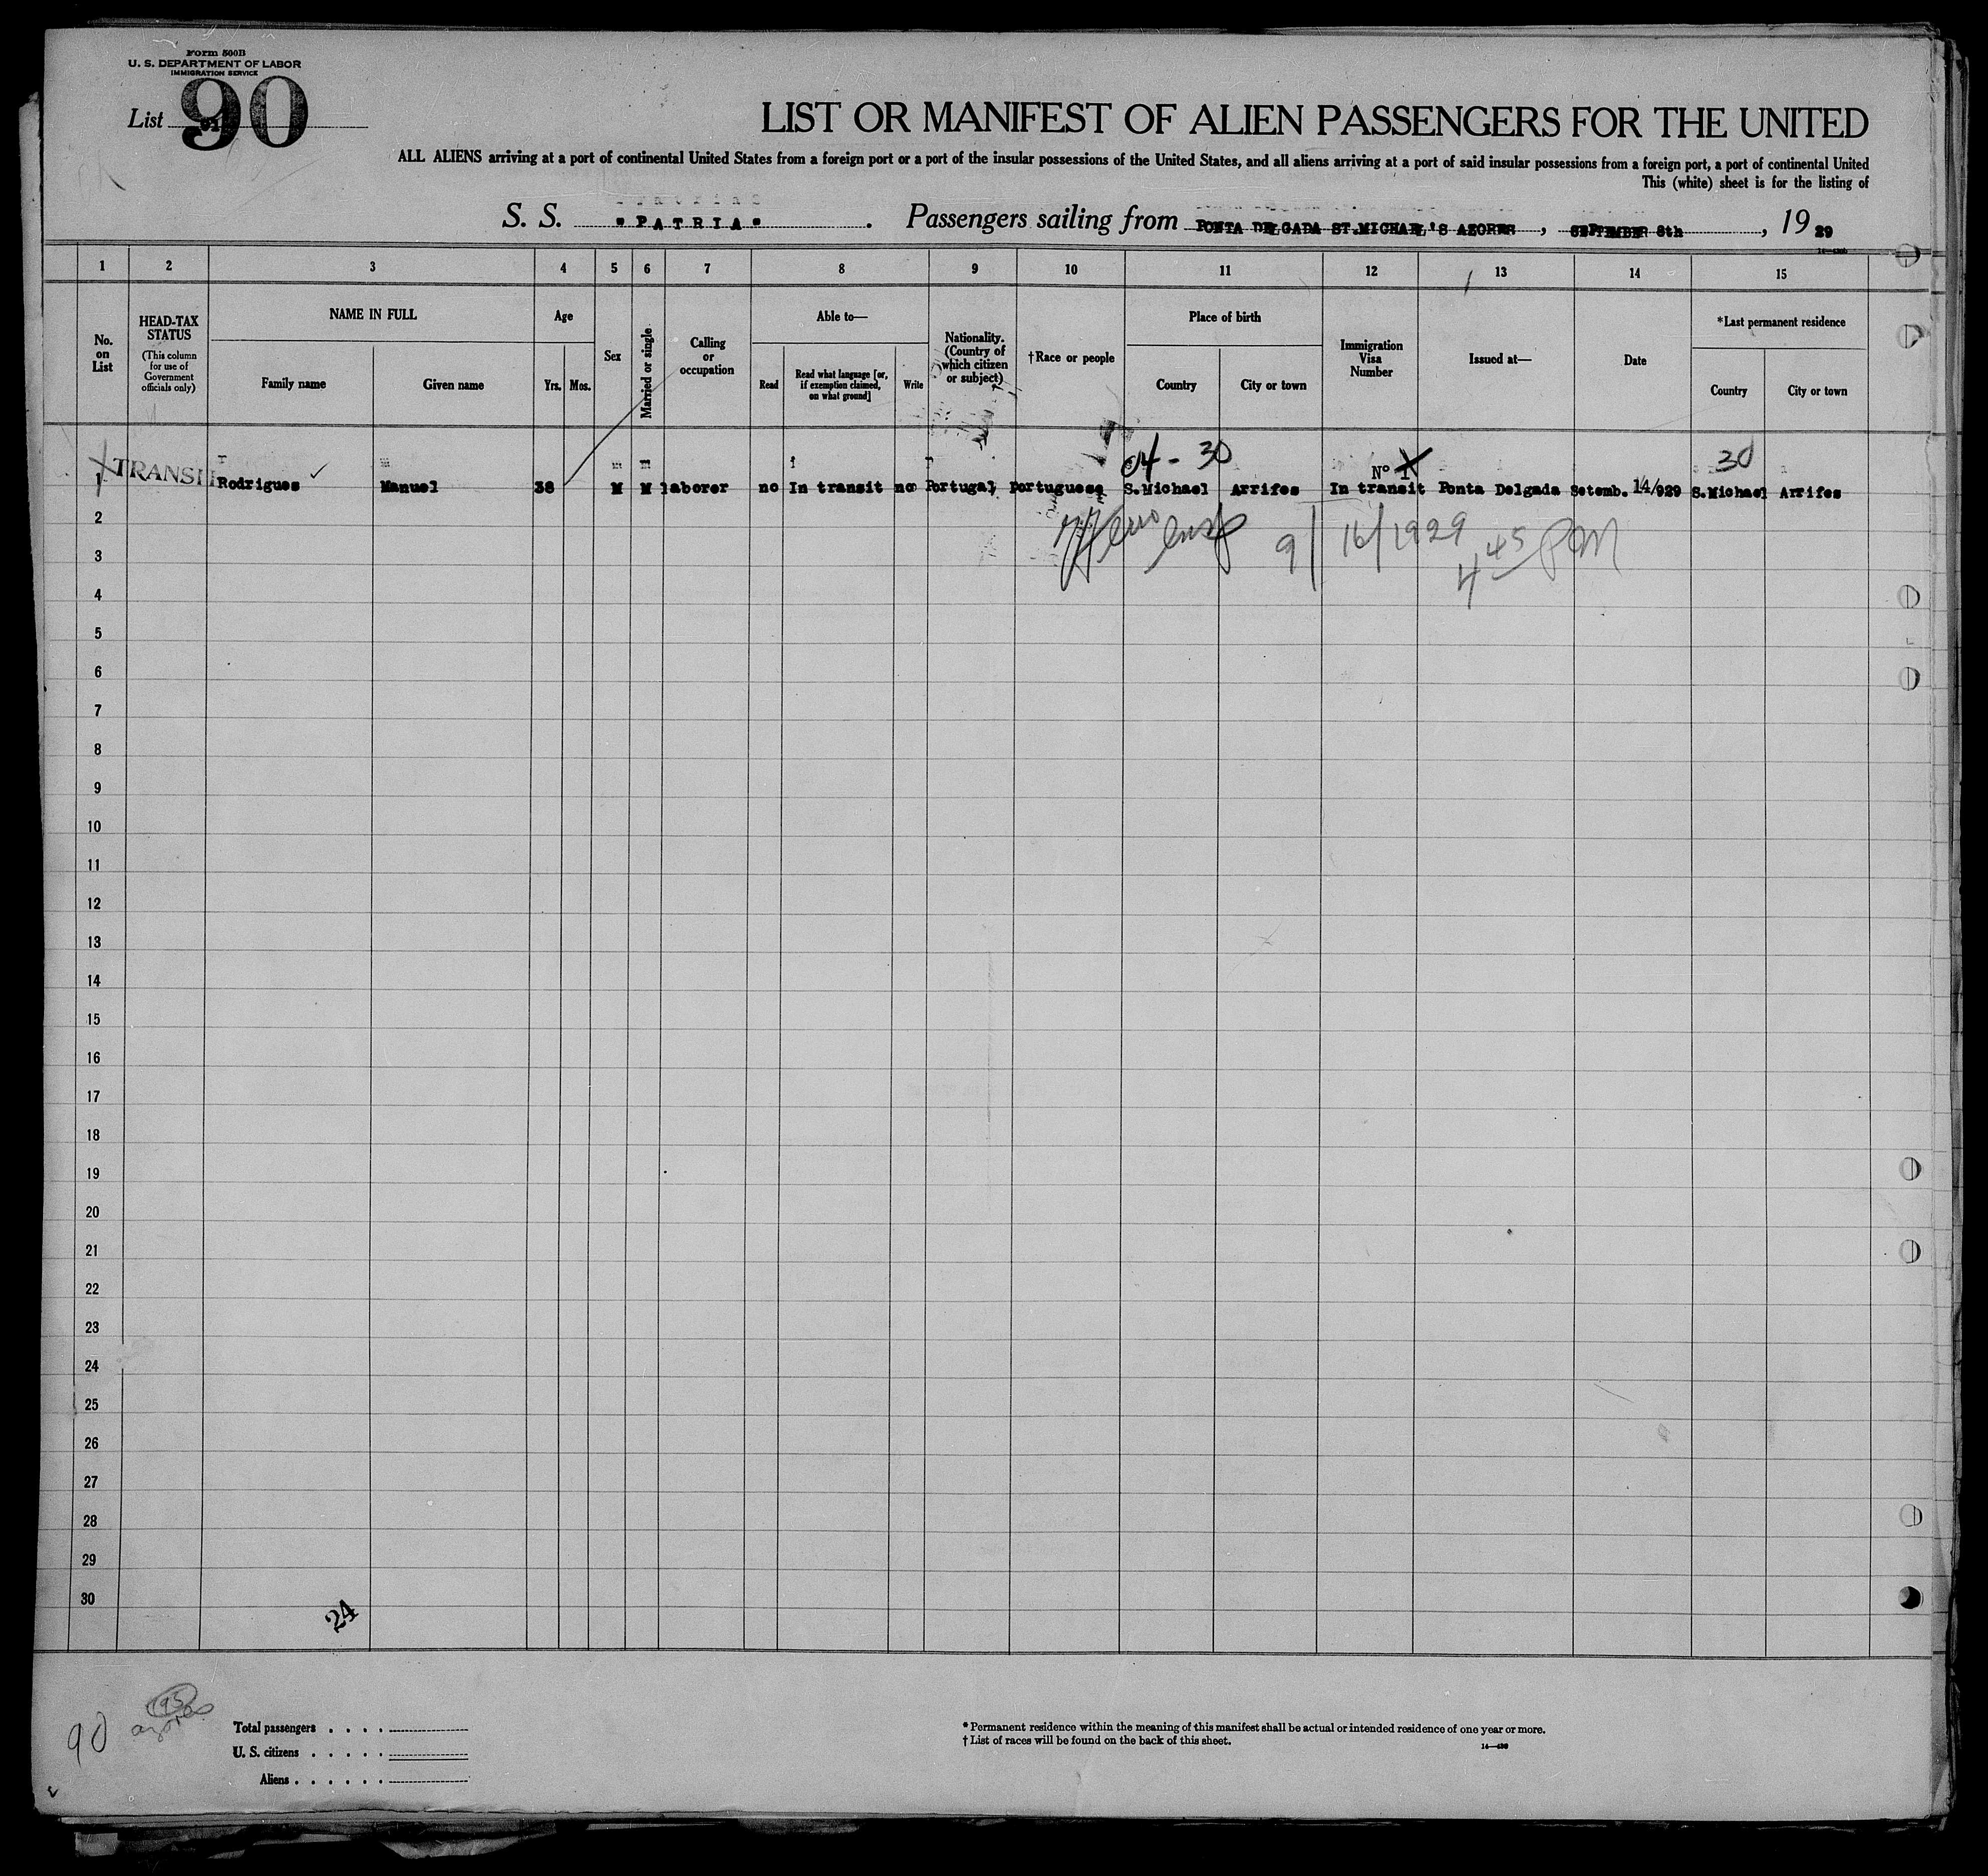 Form 500B
U. S. DEPARTMENT OF LABOR
IMMIGRATION SERVICE
List 90
LIST OR MANIFEST OF ALIEN PASSENGERS FOR THE UNITED
ALL ALIENS arriving at a port of continental United States from a foreign port or a port of the insular possessions of the United States, and all aliens arriving at a port of said insular possessions from a foreign port, a port of continental United
This (white) sheet is for the listing of
S. S. "PATRIA". Passengers sailing from PONTA DELGADA ST.MICHAEL'S AZORES, SEPTEMBER 8th, 19 29
1 2 3 4 5 6 7 8 9 10 11 12 13 14 15
No. on List
HEAD-TAX STATUS
(This column for use of Government officials only)
NAME IN FULL
Family name
Given name
Age
Yrs.
Mos.
Sex
Married or single
Calling or occupation
Able to—
Read
Read what language [or, if exemption claimed, on what ground]
Write
Nationality. (Country of which citizen or subject)
†Race or people
Place of birth
Country
City or town
Immigration Visa Number
Issued at—
Date
*Last permanent residence
Country
City or town
04-30
30
Nº 1
1 TRANSIT Rodrigues Manuel 38 M M laborer no In transit no Portugal portuguese S.Michael Arrifes In transit Ponta Delgada Setemb. 14/929 S.Michael Arrifes
9/16/1929 4 45 PM
2
3
4
5
6
7
8
9
10
11
12
13
14
15
16
17
18
19
20
21
22
23
24
25
26
27
28
29
30
24
90
95
azores
Total passengers . . . .
U. S. citizens . . . . .
Aliens . . . . . .
* Permanent residence within the meaning of this manifest shall be actual or intended residence of one year or more.
† List of races will be found on the back of this sheet.